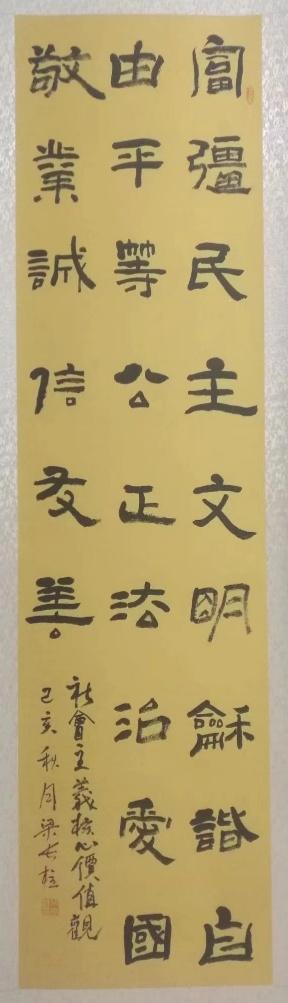 富彊民主文明龢諧自
由平等公正法治愛國
敬業誠信友善
社會主義核心價值觀
己亥秋月梁